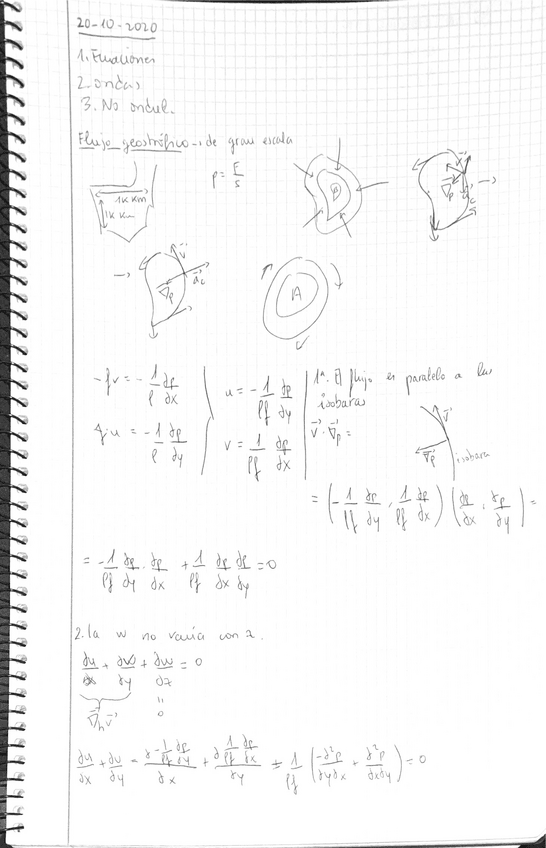 20-10-2020
1. Ecuaciones
2. ondas
3. No ondul.
Flujo geostrófico → de gran escala
1K KM
1K Km
p = F/s
B
V⃗
∇⃗p
a⃗c
V⃗
∇⃗p
a⃗c
A
-fv = -1/ρ ∂p/∂x
fu = -1/ρ ∂p/∂y
u = -1/ρf ∂p/∂y
v = 1/ρf ∂p/∂x
1ª. El flujo es paralelo a las
isobaras
V⃗ · ∇⃗p =
V⃗
∇⃗p
isobara
= (-1/ρf ∂p/∂y, 1/ρf ∂p/∂x) (∂p/∂x, ∂p/∂y) =
= -1/ρf ∂p/∂y · ∂p/∂x + 1/ρf ∂p/∂x ∂p/∂y = 0
2. la w no varía con z.
∂u/∂x + ∂v/∂y + ∂w/∂z = 0
∇⃗h V⃗
"
0
∂u/∂x + ∂v/∂y = ∂ -1/ρf ∂p/∂y / ∂x + ∂ 1/ρf ∂p/∂x / ∂y = 1/ρf (-∂²p/∂y∂x + ∂²p/∂x∂y) = 0